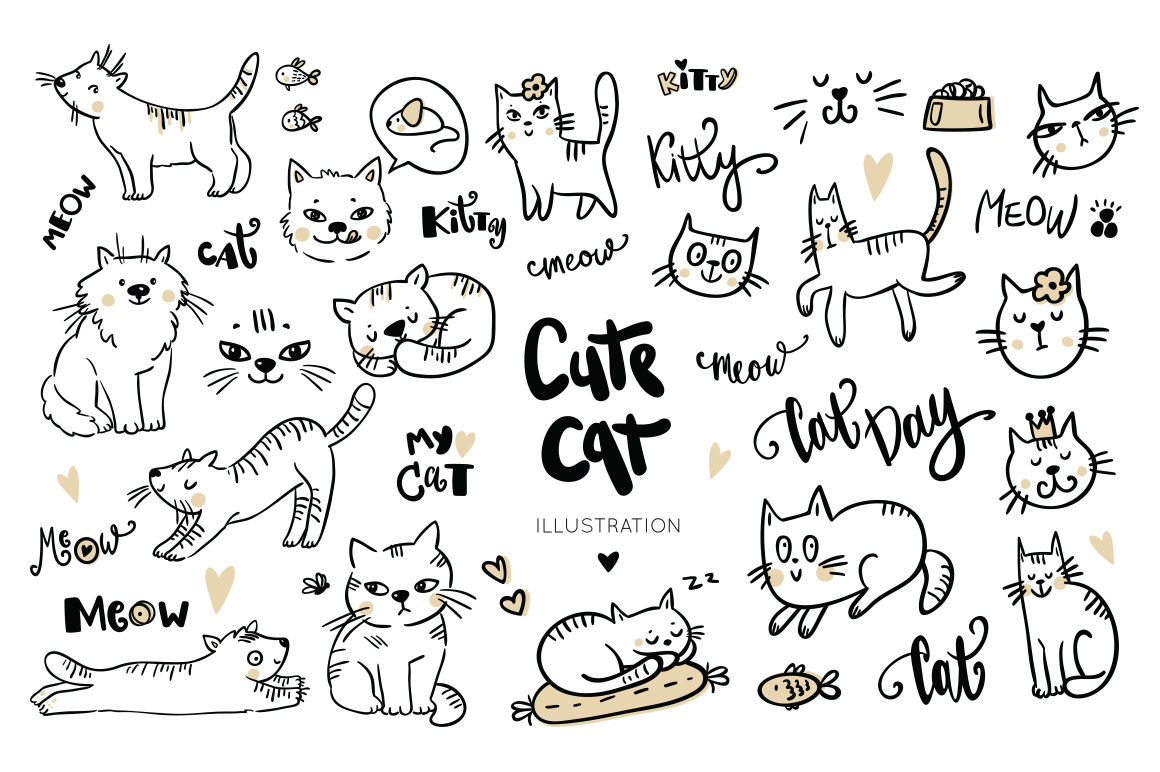 KiTTY
Kitty
MEOW
MEOW
cAT
KiTTy
meow
Cute
cat
ILLUSTRATION
meow
Cat Day
My
CaT
MeoW
MeoW
zz
Cat